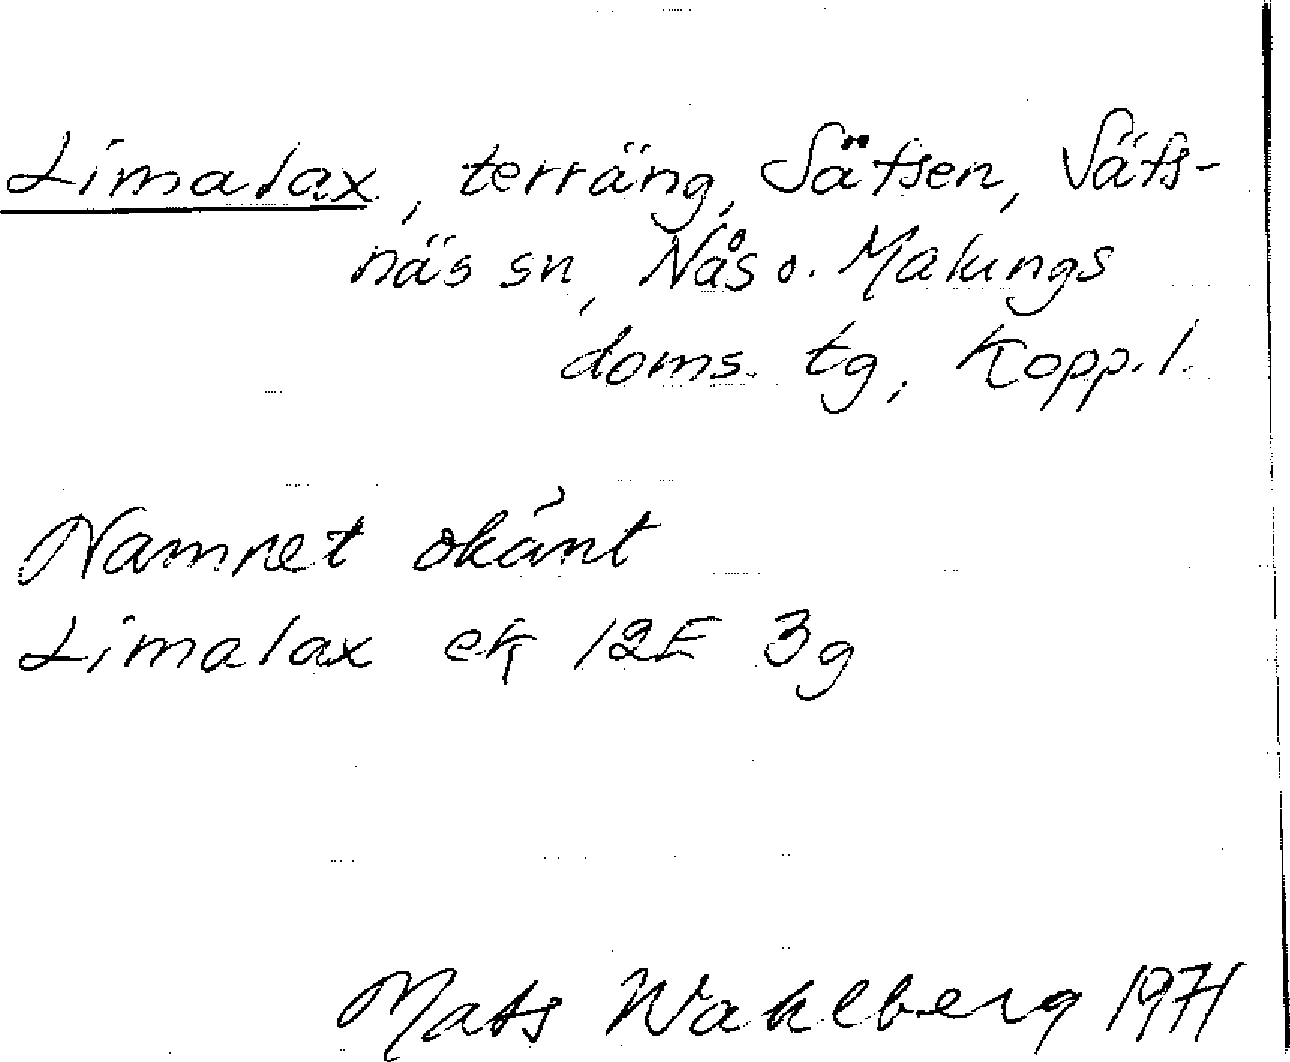 Limalax, terräng, Sätsen, Säfs-
näs sn, Nås o. Malungs
doms. tg, Kopp. l.
Namnet okänt
Limalax ek 12E 3g
Mats Wahlberg 1971